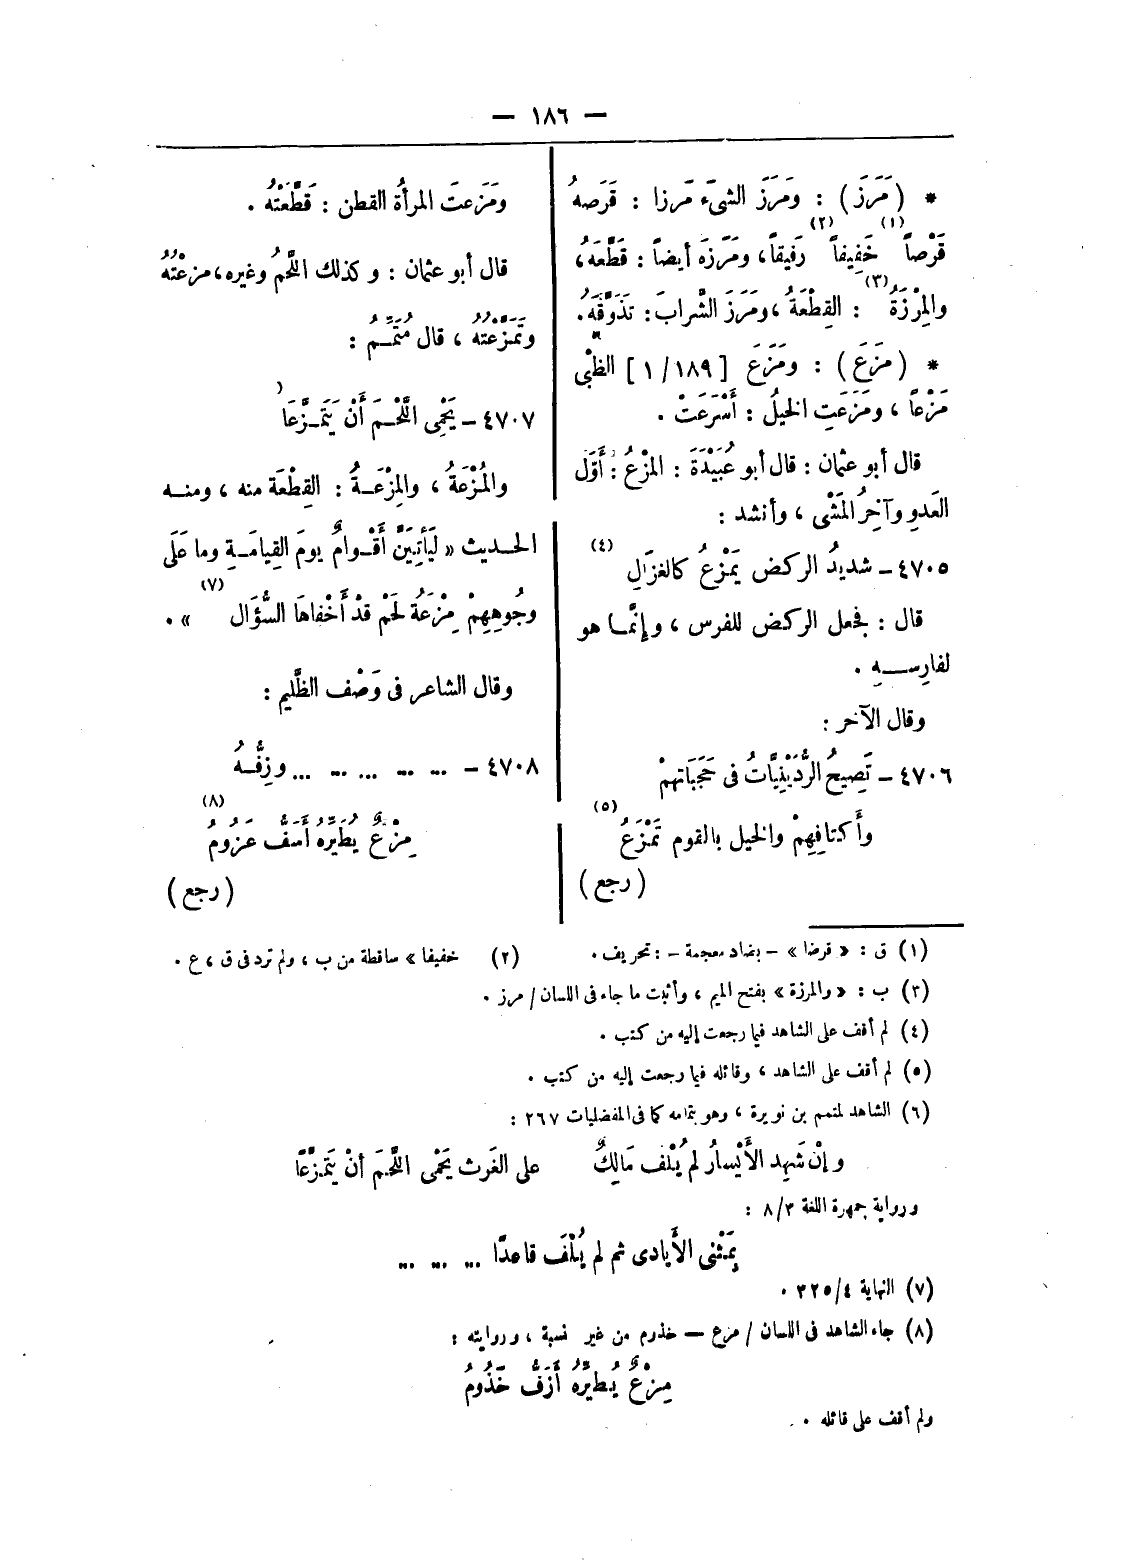 — ١٨٦ —
* ( مَرَزَ ) : ومَرَزَ الشىءَ مَرزا : قَرَصهُ
قَرْصاً (١) خَفِيفاً (٢) رَفيقاً ، ومَرَزَه أيضاً : قَطَّعَهُ ،
والمِرْزَةُ (٣) : القِطْعَةُ ، ومَرَزَ الشَّرابَ : تَذَوَّقَهُ .
* ( مَزَعَ ) : ومَزَعَ [ ١٨٩ / ١ ] الظبْى
مَزْعاً ، ومَزَعَتِ الخيلُ : أَسْرَعَتْ .
قال أبو عثمان : قال أبو عُبَيْدَةَ : المزْعُ : أَوَّل
العَدوِ وآخِرُ المَشْى ، وأنشد :
٤٧٠٥ – شديدُ الركض يَمْزعُ كالغزَالِ (٤)
قال : فجعل الركض للفرس ، وإنَّما هو
لفارِسـهِ .
وقال الآخر :
٤٧٠٦ – تَصِيحُ الرُّدَيْنِيَّاتُ فى حَجَبَاتهمْ
وأَكتافِهِمْ والخيل بالقوم تَمْزَعُ (٥)
( رجع )
ومَزَعتَ المرأةُ القطن : قَطَّعَتْهُ .
قال أبو عثمان : وكذلك اللَّحمُ وغيره ، مزعْتهُ
وتَمَزعتهُ ، قال مُتَمِّـمُ :
٤٧٠٧ – يَحْمِى اللَّحْـمَ أَنْ يَتَمَـزَّعَا (
والمُزْعَةُ ، والمِزْعَـةُ : القِطْعَة منه ، ومنـه
الحـديث « لَيَأتِيَنَّ أَقْـوامٌ يومَ القِيامَـةِ وما عَلَى
وجُوهِهِمْ مِزْعَةُ لَحْم قدْ أَخْفاهَا السُّؤَال (٧) » .
وقال الشاعر فى وَصْف الظَّليم :
٤٧٠٨ – ... ... ... ... ... وزِفُّـهُ
مِزْعٌ يُطَيِّرُهُ أَسَفُّ عَزُومُ (٨)
( رجع )
(١) ق : « قرضا » – بضاد معجمة – : تحريف . (٢) خفيفا » ساقطة من ب ، ولم ترد فى ق ، ع .
(٣) ب : « والمرزة » بفتح الميم ، وأثبت ما جاء فى اللسان / مرز .
(٤) لم أقف على الشاهد فيما رجعت إليه من كتب .
(٥) لم أقف على الشاهد ، وقائله فيما رجعت إليه من كتب .
(٦) الشاهد لمتمم بن نويرة ، وهو بتمامه كما فى المفضليات ٢٦٧ :
وإنْ شَهِد الأَيْسارُ لم يُلْف مَالِكٌ على الغَرث يَحَمْى اللَّحمَ أنْ يَتَمزَّعَا
ورواية جمهرة اللغة ٣/٨ :
بِمَثْنى الأَيادى ثم لم يُلْفَ قاعدًا ... ... ...
(٧) النهاية ٣٢٥/٤ .
(٨) جاء الشاهد فى اللسان / مزع – خذرم من غير نسبة ، وروايته :
مِزْعٌ يُطيِّرُهُ أَزَفُّ خَذُومُ
ولم أقف على قائله .